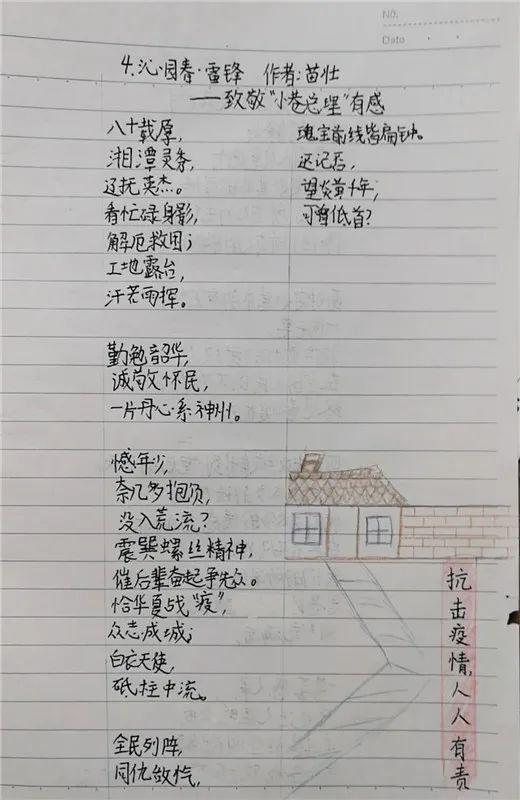 NO.
Date
4.沁园春·雷锋 作者:苗壮
——致敬"小巷总理"有感
八十载厚,
湘潭灵条,
辽抚英杰。
看忙碌身影,
解厄救困;
工地露台,
汗若雨挥。
勤勉韶华,
诚敬怀民,
一片丹心系神州。
憾年少,
奈几多抱负,
没入荒流?
震巽螺丝精神,
催后辈奋起争先众。
恰华夏战"疫",
众志成城;
白衣天使,
砥柱中流。
全民列阵,
同仇敌忾,
瑰宝前线皆扁钟。
还记否,
望炎黄十年;
可曾低首?
抗击疫情,人人有责